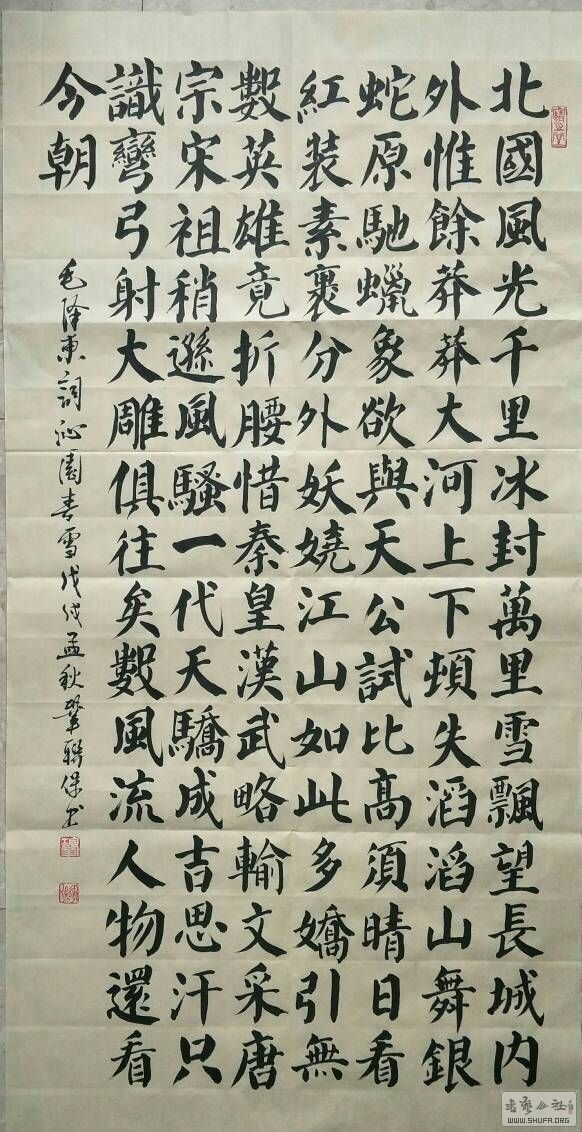 北國風光千里冰封萬里雪飄望長城内
外惟餘莽莽大河上下頓失滔滔山舞銀
蛇原馳蠟象欲與天公試比高須晴日看
紅装素裹分外妖嬈江山如此多嬌引無
數英雄竟折腰惜秦皇漢武略輸文采唐
宗宋祖稍遜風騷一代天驕成吉思汗只
識彎弓射大雕俱往矣數風流人物還看
今朝
毛澤東詞沁園春雪戊戌孟秋鞏聯保書
WWW.SHUFA.ORG